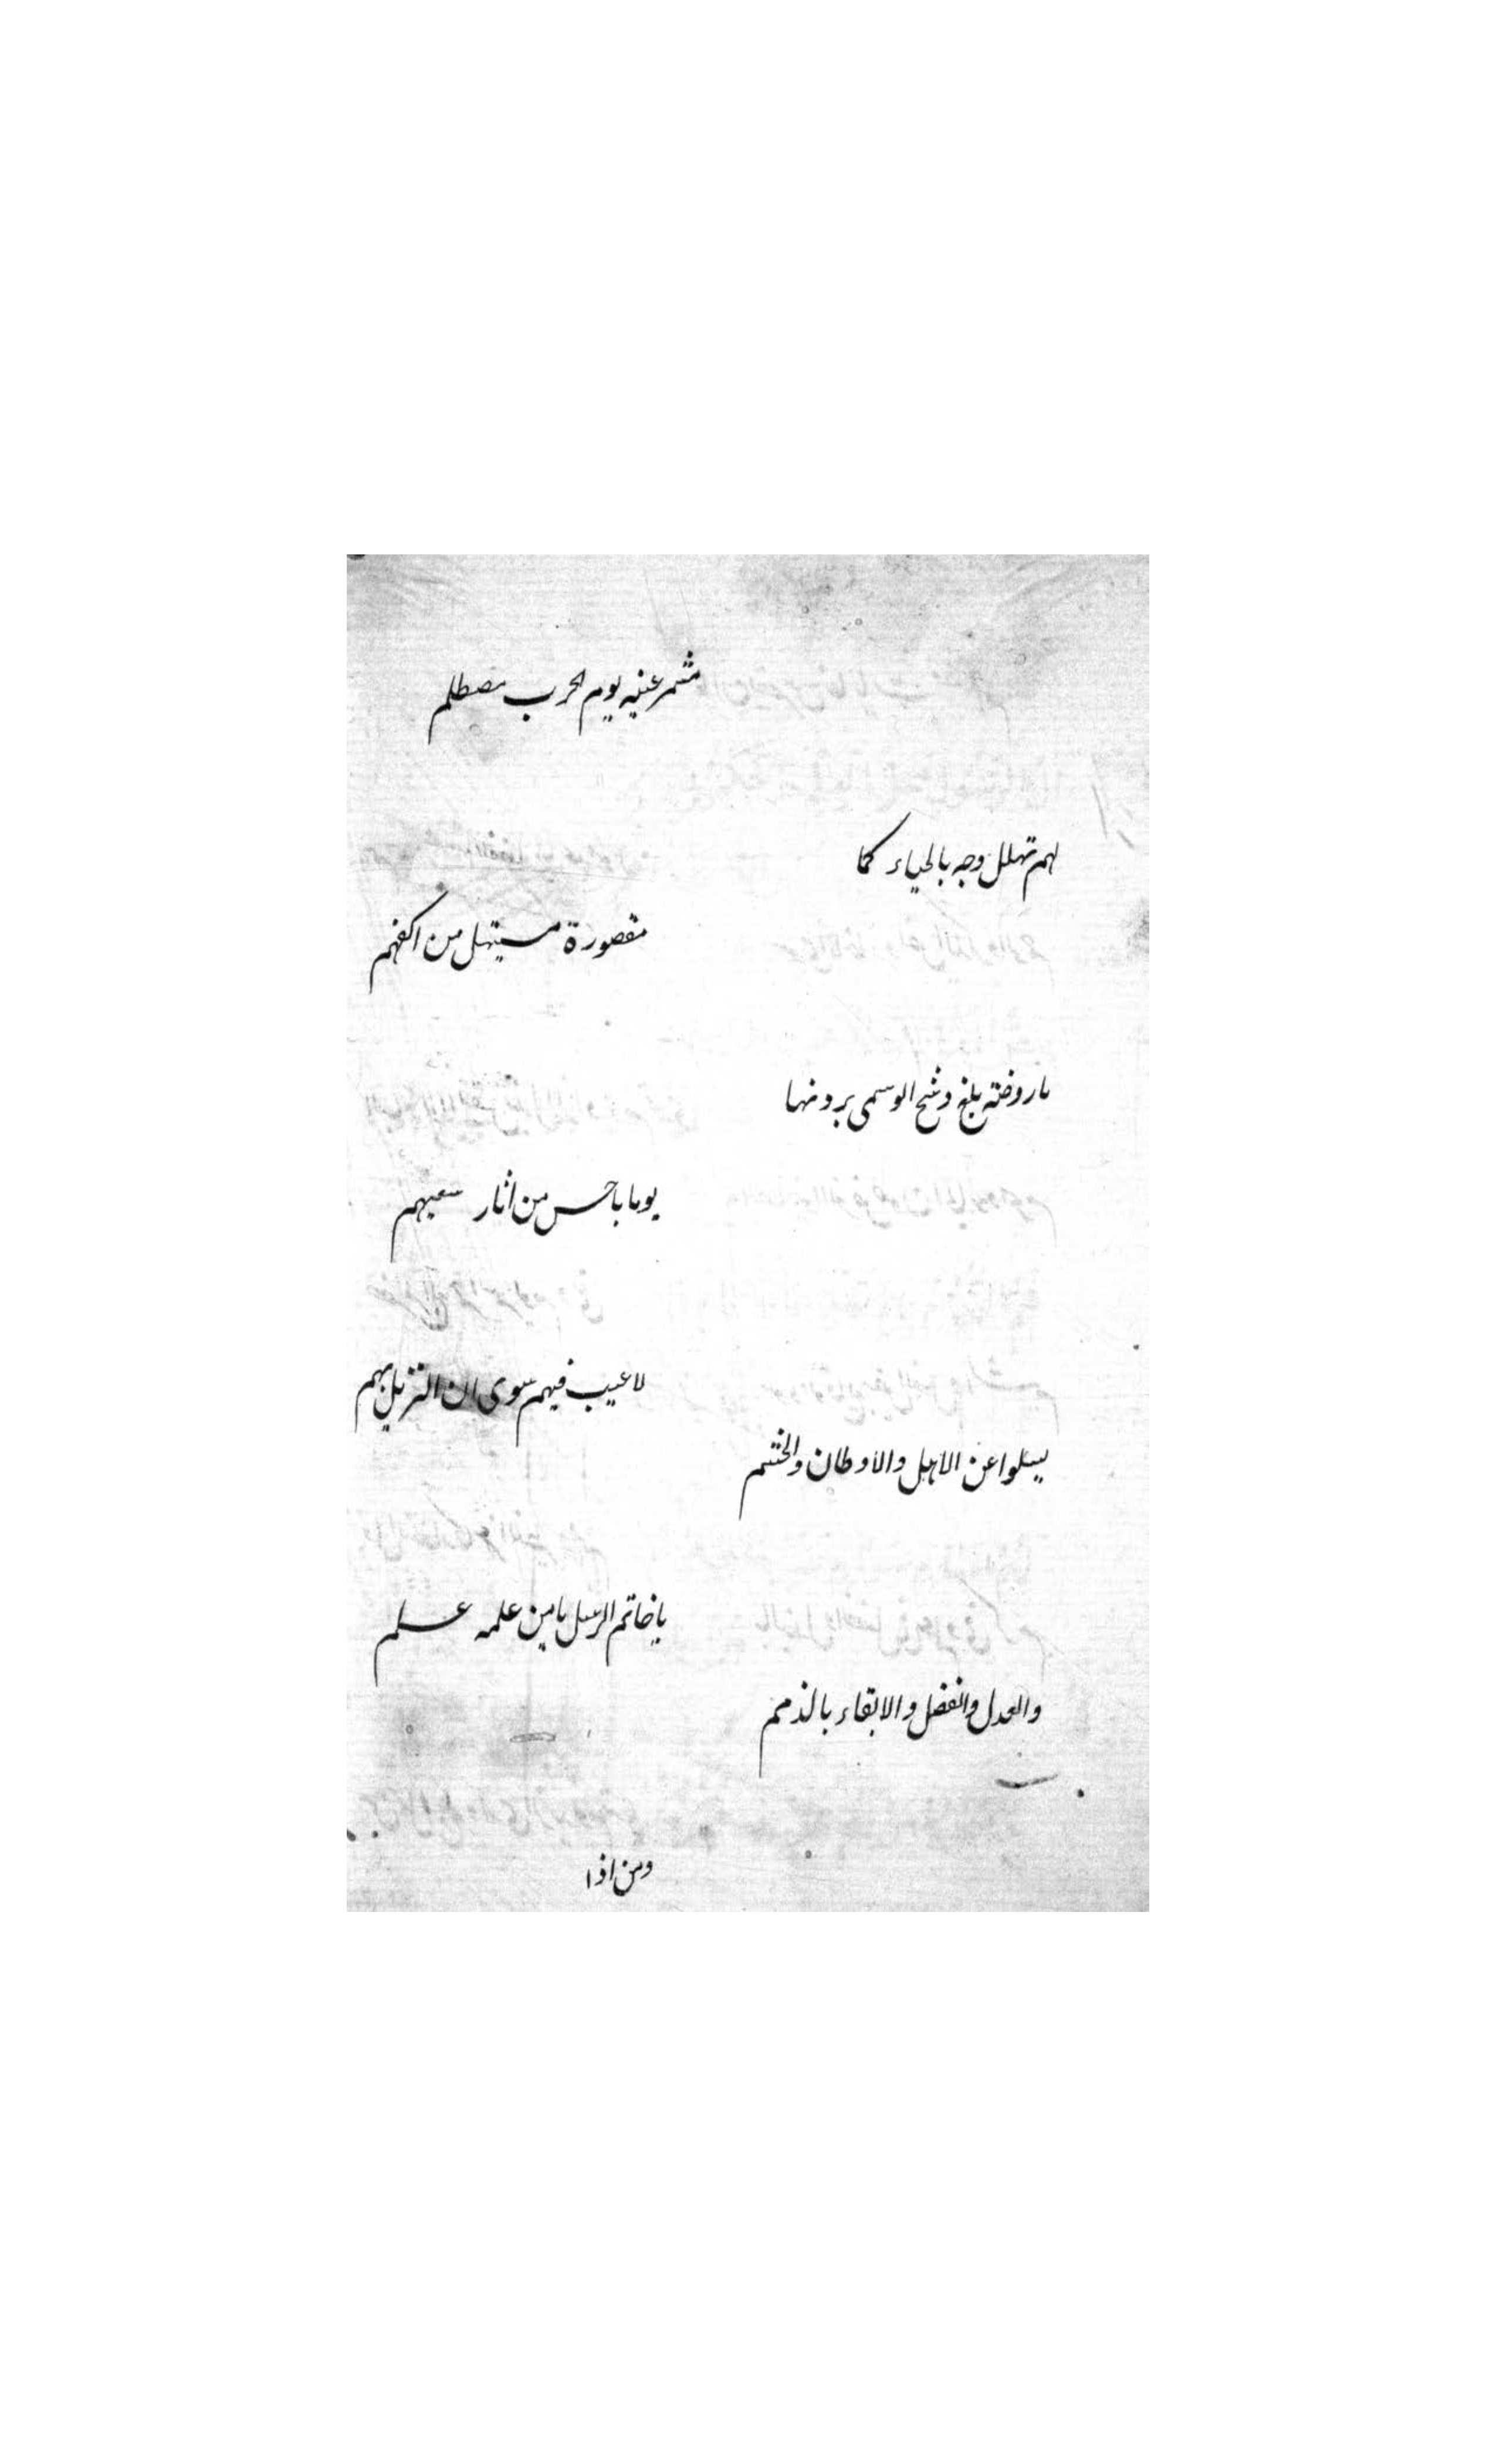 مشمر عنه يوم الحرب مصطلم
لهم تهلل وجه بالحياء كما
مقصورة مستهل من اكفهم
ما روضة بلغ وشح الوسمى بردنها
يوما باحسن من اثار سعيهم
لا عيب فيهم سوى ان النزيل بهم
يسلوا عن الاهل والاوطان والحشم
يا خاتم الرسل يا من علمه علم
والعدل والفضل والابقاء بالذمم
ومن اذا